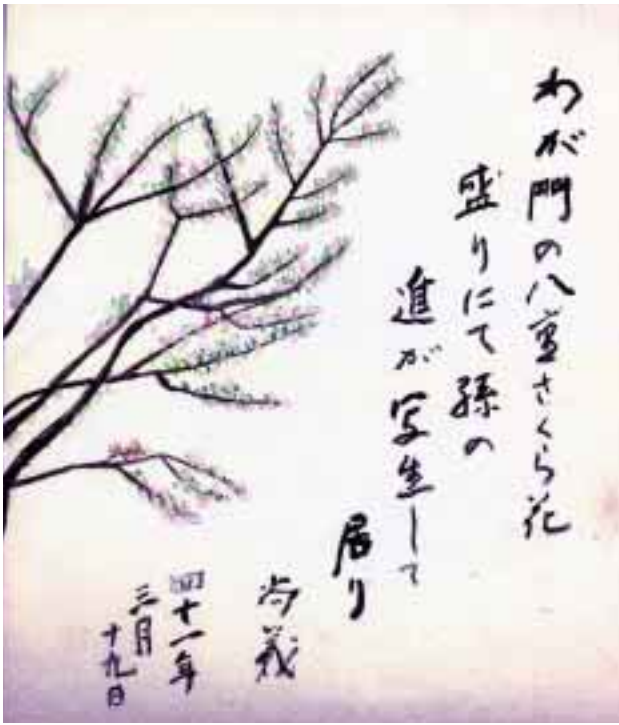 わが門の八重さくら花
盛りにて孫の
進が写生して
居り
尚義
四十一年
三月
十九日